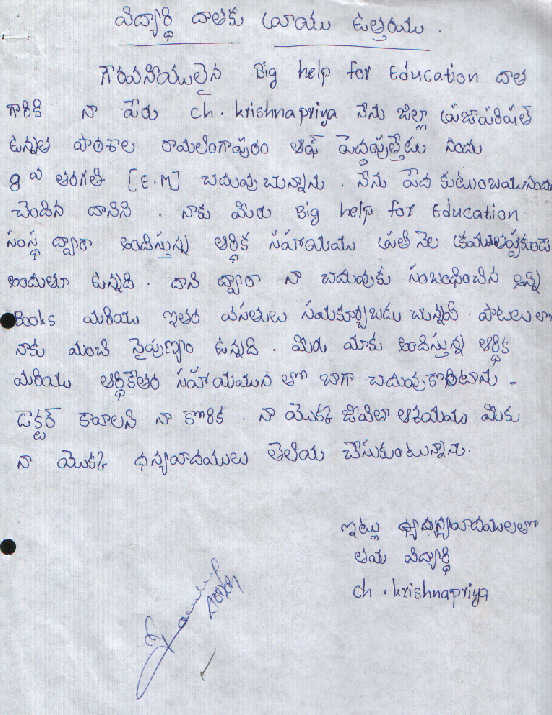 విద్యార్థి దాతకు వ్రాయు ఉత్తరము.
గౌరవనీయులైన Big help for Education దాత
గారికి నా పేరు ch. krishnapriya నేను జిల్లా ప్రజాపరిషత్
ఉన్నత పాఠశాల రామలింగాపురం ఆఫ్ పెద్దపుత్తేడు నందు
9 వ తరగతి [E.M] చదువుచున్నాను. నేను పేద కుటుంబమునకు
చెందిన దానిని. నాకు మీరు Big help for Education
సంస్థ ద్వారా అందిస్తున్న ఆర్థిక సహాయము ప్రతి నెల క్రమంతప్పకుండా
అందుతూ ఉన్నది. దాని ద్వారా నా చదువుకు సంబంధించిన అన్ని
Books మరియు ఇతర వసతులు సమకూర్చబడు చున్నవి. పాటలు లో
నాకు మంచి నైపుణ్యం ఉన్నది. మీరు మాకు అందిస్తున్న ఆర్థిక
మరియు ఆర్థికేతర సహాయమున తో బాగా చదువుకొంటాను.
డాక్టర్ కావాలని నా కోరిక. నా యొక్క జీవితా ఆశయము మీకు
నా యొక్క ధన్యవాదములు తెలియ చేసుకుంటున్నాను.
ఇట్లు ధన్యవాదములతో
తమ విద్యార్థి
ch. krishnapriya